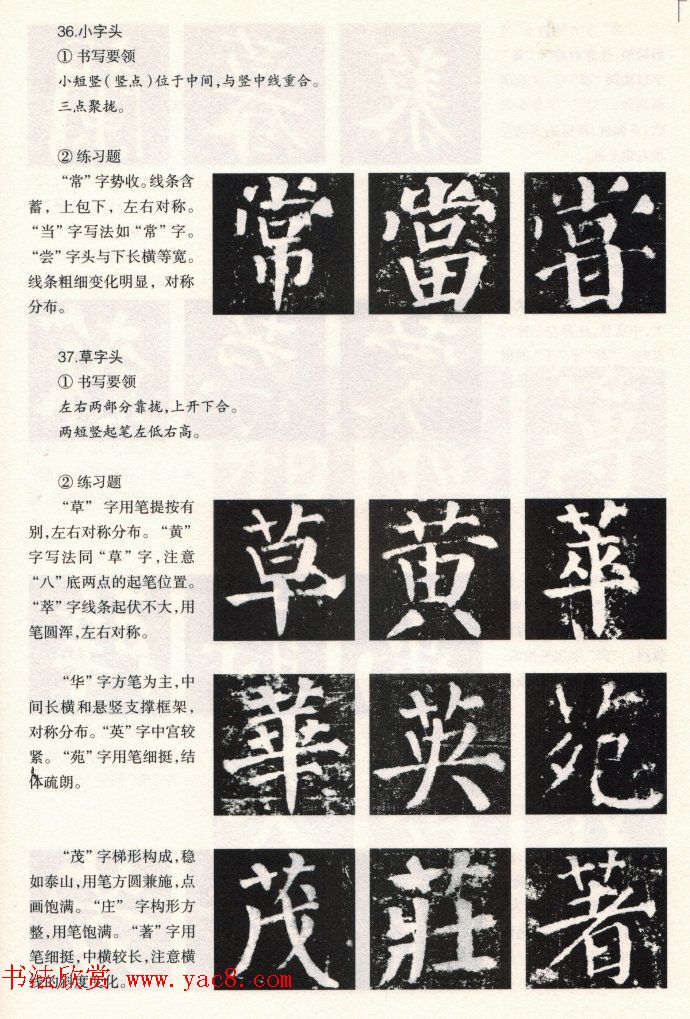 36.小字头
① 书写要领
小短竖(竖点)位于中间,与竖中线重合。
三点聚拢。
② 练习题
“常”字势收。线条含
蓄，上包下，左右对称。
“当”字写法如“常”字。
“尝”字头与下长横等宽。
线条粗细变化明显，对称
分布。
常 當 嘗
37.草字头
① 书写要领
左右两部分靠拢,上开下合。
两短竖起笔左低右高。
② 练习题
“草” 字用笔提按有
别,左右对称分布。“黄”
字写法同“草”字,注意
“八”底两点的起笔位置。
“萃”字线条起伏不大,用
笔圆浑,左右对称。
草 黄 萃
“华”字方笔为主,中
间长横和悬竖支撑框架,
对称分布。“英”字中宫较
紧。“苑”字用笔细挺,结
体疏朗。
華 英 苑
“茂”字梯形构成,稳
如泰山,用笔方圆兼施,点
画饱满。“庄” 字构形方
整,用笔饱满。“著”字用
笔细挺,中横较长,注意横
线的斜度变化。
茂 莊 著
书法欣赏 www.yac8.com